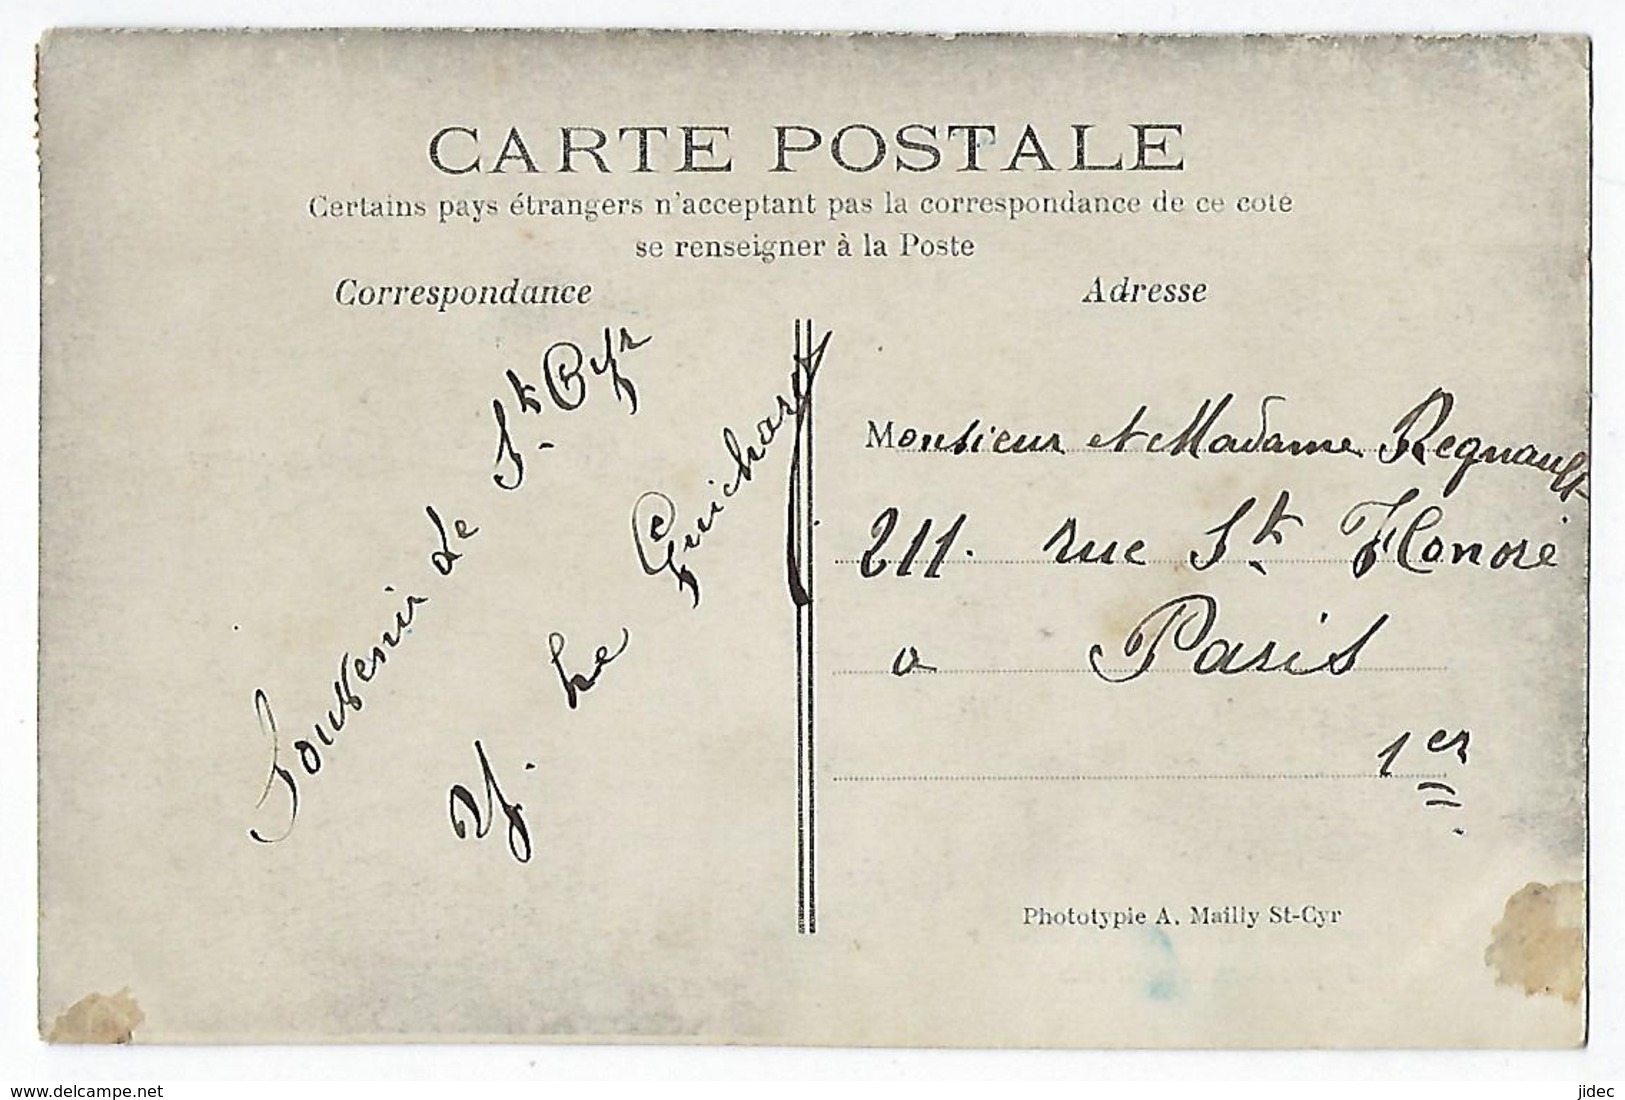 CARTE POSTALE
Certains pays étrangers n'acceptant pas la correspondance de ce coté
se renseigner à la Poste
Correspondance
Adresse
Souvenir de St. Cyr
Y. Le Guichard
Monsieur et Madame Regnault
211. rue St. Honoré
a Paris
1er
Phototypie A. Mailly St-Cyr
delcampe.net
jidec